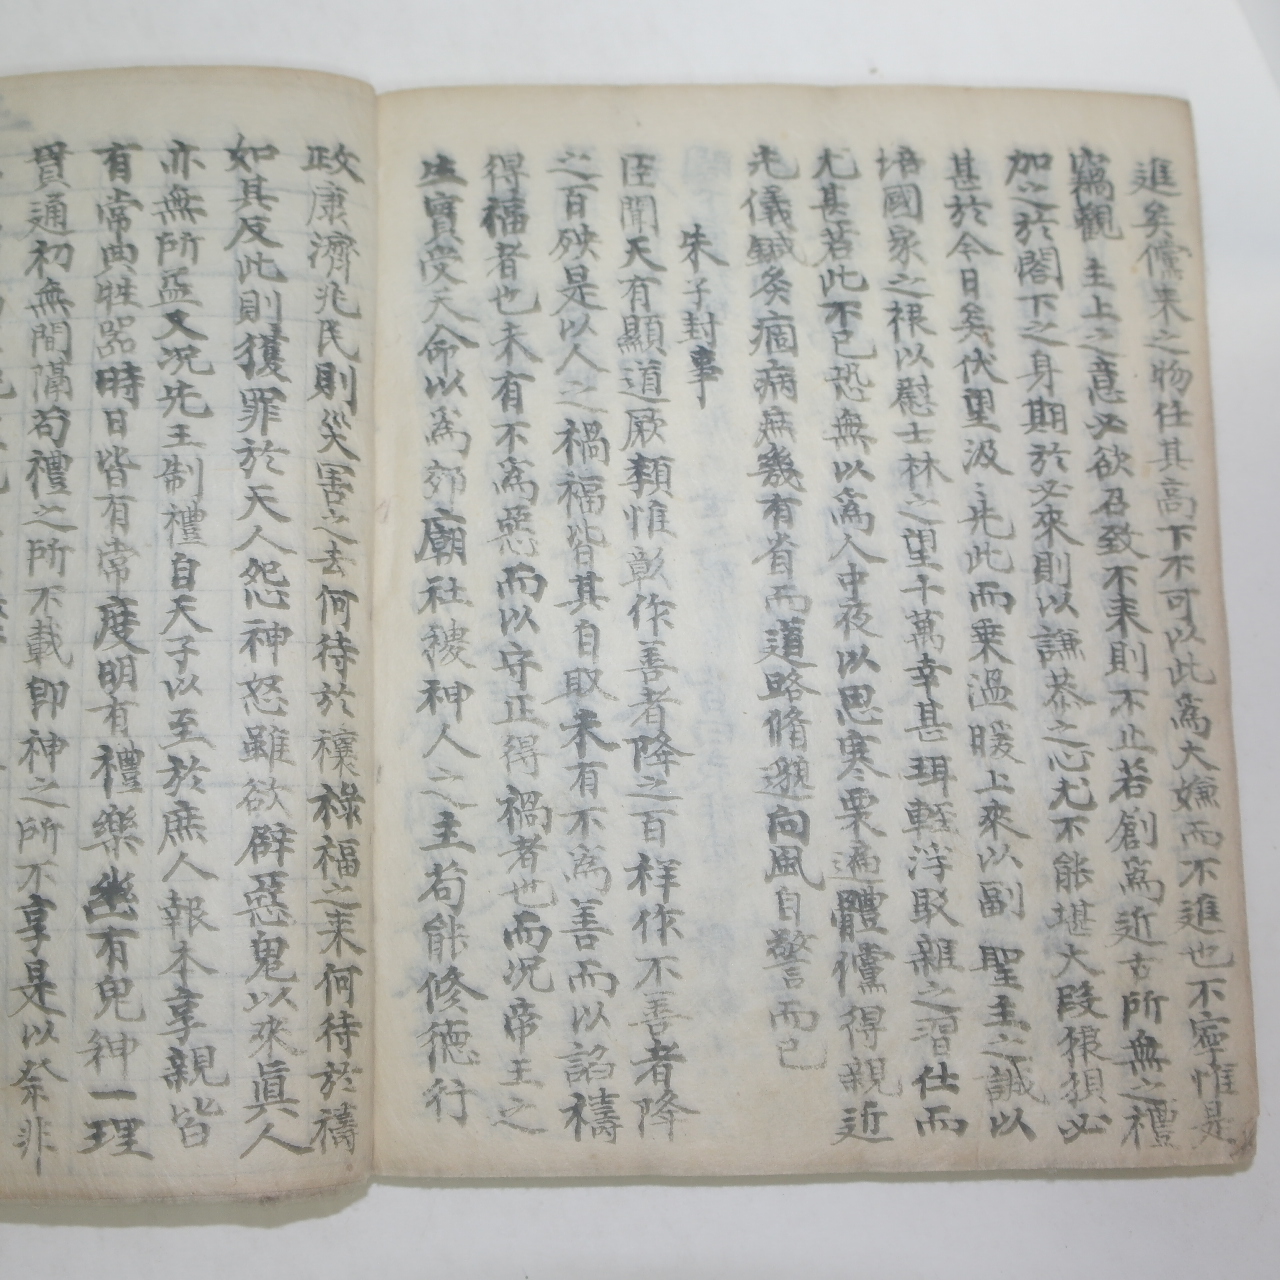 進矣儻来之物任其高下不可以此爲大嫌而不進也不寧惟是
竊觀 主上之意必欲召致不来則不止若創爲近古所無之禮
加之於閤下之身期於必來則以謙恭之心尤不能堪大段狼狽必
甚於今日矣伏望汲〻先此而乗温暖上來以副 聖主之誠以
培國家之根以慰士林之望千萬幸甚珥輕浮駁雜之習仕而
尤甚若此不已恐無以爲人中夜以思寒栗遍體儻得親近
先儀鍼灸痼病無幾有省而道路脩邈向風自警而已
朱子封事
臣聞天有顯道厥類惟彰作善者降之百祥作不善者降
之百殃是以人之禍福皆其自取未有不爲善而以諂禱
得福者也未有不爲惡而以守正得禍者也而况帝王之
生實受天命以爲郊廟社稷神人之主苟能修德行
政康濟兆民則災害之去何待於禳祿福之来何待於禱
如其反此則獲罪於天人怨神怒雖欲辟惡鬼以來眞人
亦無所益又况先王制禮自天子以至於庶人報本享親皆
有常典牲器時日皆有常度明有禮樂幽有鬼神一理
貫通初無間隔苟禮之所不載卽神之所不享是以祭非